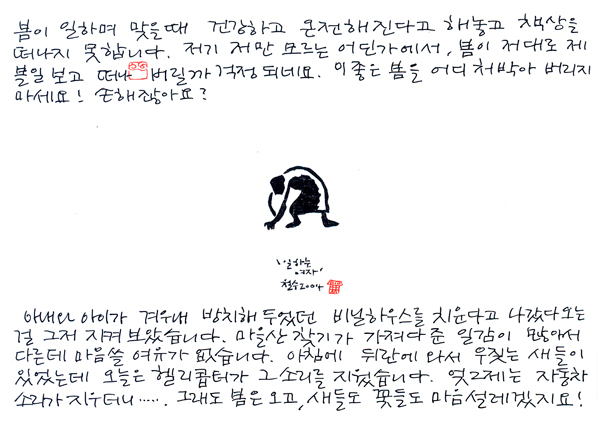 봄이 일하며 맞을때 건강하고 온전해진다고 해놓고 책상을
떠나지 못합니다. 저기 저만 모르는 어딘가에서, 봄이 저대로 제
볼일 보고 떠나버릴까 걱정되네요. 이 좋은 봄을 어디 처박아 버리지
마세요! 손해잖아요?
'일하는
여자'
철수2004
아내와 아이가 겨우내 방치해 두었던 비닐하우스를 치운다고 나갔다 오는
걸 그저 지켜 보았습니다. 마을산 찾기가 가져다 준 일감이 많아서
다른데 마음쓸 여유가 없습니다. 아침에 뒤란에 와서 우짖는 새들이
있었는데 오늘은 헬리콥터가 그 소리를 지웠습니다. 엊그제는 자동차
소리가 지우더니..... 그래도 봄은 오고, 새들도 꽃들도 마음설레겠지요!